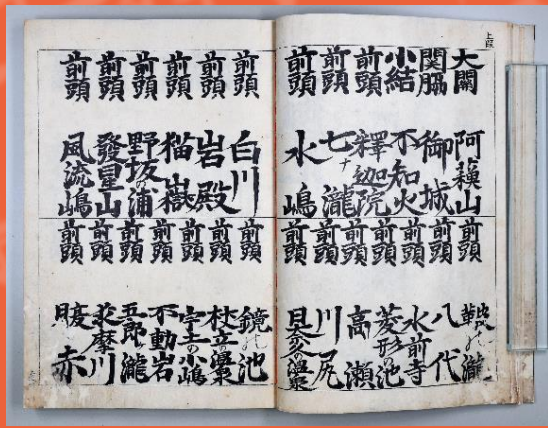 上段
大関 阿蘓山
関脇 御城
小結 不知火
前頭 釋迦院
前頭 七十瀧
前頭 水嶋
前頭 瀧
前頭 八代
前頭 水前寺
前頭 菱形の池
前頭 高瀬
前頭 川尻
前頭 日奈久の温泉
前頭 白川
前頭 岩殿
前頭 猫嶽
前頭 野坂の浦
前頭 發星山
前頭 風流嶋
前頭 鏡の池
前頭 杖立温泉
前頭 宇土の小嶋
前頭 不動岩
前頭 五郎瀧
前頭 求摩川
前頭 腹赤